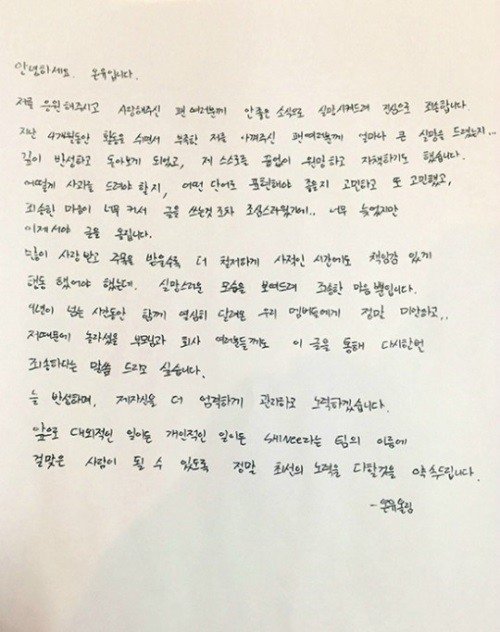 안녕하세요. 온유입니다.
저를 응원해주시고 사랑해주신 팬 여러분께 안좋은 소식으로 실망시켜드려 진심으로 죄송합니다.
지난 4개월동안 활동을 쉬면서 부족한 저를 아껴주신 팬 여러분께 얼마나 큰 실망을 드렸는지...
깊이 반성하고 돌아보게 되었고, 저 스스로를 끊임없이 원망하고 자책하기도 했습니다.
어떻게 사과를 드려야 할지, 어떤 단어로 표현해야 좋을지 고민하고 또 고민했고,
죄송한 마음이 너무 커서 글을 쓰는것 조차 조심스러웠기에.. 너무 늦었지만
이제서야 글을 올립니다.
많이 사랑 받고 주목을 받을수록 더 철저하게 사적인 시간에도 책임감 있게
행동 했어야 했는데, 실망스러운 모습을 보여드려 죄송한 마음 뿐입니다.
9년이 넘는 시간동안 함께 열심히 달려온 우리 멤버들에게 정말 미안하고,,
저때문에 놀라셨을 부모님과 회사 여러분들께도 이 글을 통해 다시한번
죄송하다는 말씀 드리고 싶습니다.
늘 반성하며, 제자신을 더 엄격하게 관리하고 노력하겠습니다.
앞으로 대외적인 일이든 개인적인 일이든 SHINee라는 팀의 이름에
걸맞은 사람이 될 수 있도록 정말 최선의 노력을 다할것을 약속드립니다.
-온유올림